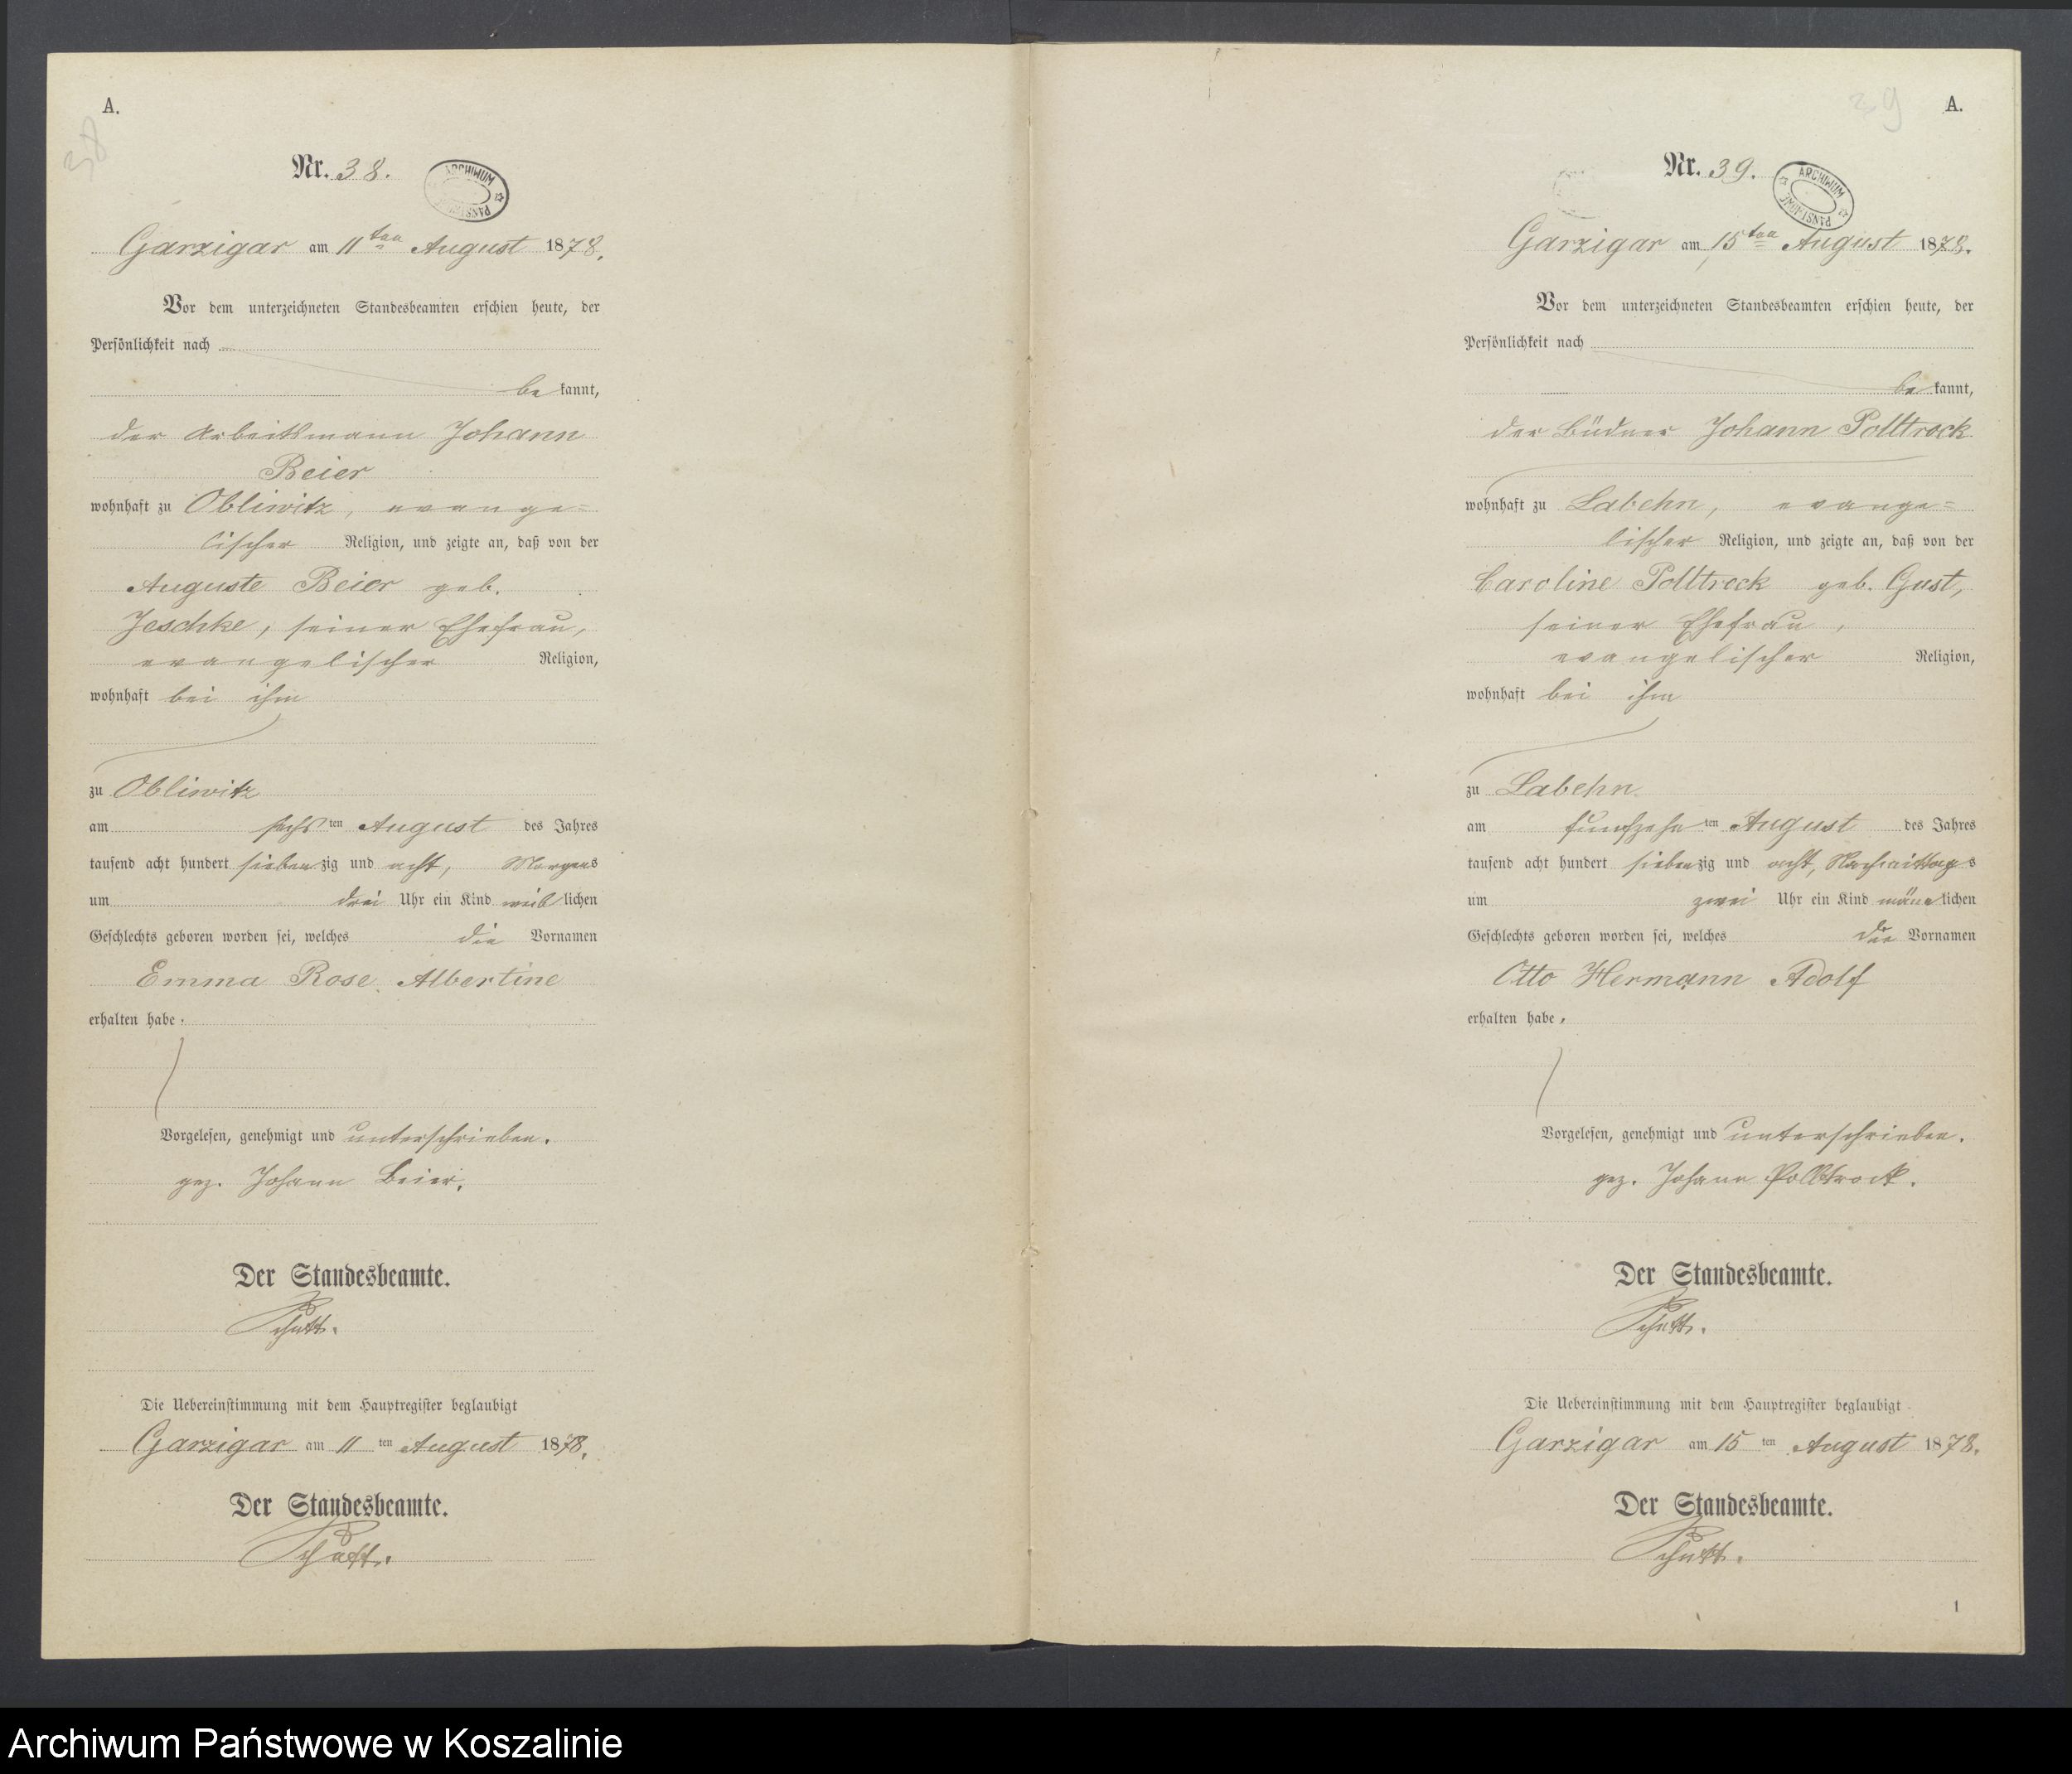 A.
38
Nr. 38.
ARCHIWUM PAŃSTWOWE
Garzigar am 11ten August 1878.
Vor dem unterzeichneten Standesbeamten erschien heute, der
Persönlichkeit nach
be kannt,
der Arbeitsmann Johann
Beier
wohnhaft zu Obliwitz, evange=
lischer Religion, und zeigte an, daß von der
Auguste Beier geb.
Jeschke, seiner Ehefrau,
evangelischer Religion,
wohnhaft bei ihm
zu Obliwitz
am sechsten August des Jahres
tausend acht hundert siebenzig und acht, Morgens
um drei Uhr ein Kind weiblichen
Geschlechts geboren worden sei, welches die Vornamen
Emma Rose Albertine
erhalten habe.
Vorgelesen, genehmigt und unterschrieben.
gez. Johann Beier.
Der Standesbeamte.
Schutt.
Die Uebereinstimmung mit dem Hauptregister beglaubigt
Garzigar am 11ten August 1878.
Der Standesbeamte.
Schutt.
39
A.
Nr. 39.
ARCHIWUM PAŃSTWOWE
Garzigar am 15ten August 1878.
Vor dem unterzeichneten Standesbeamten erschien heute, der
Persönlichkeit nach
be kannt,
der Büdner Johann Polltrock
wohnhaft zu Labehn, evange=
lischer Religion, und zeigte an, daß von der
Caroline Polltrock geb. Gust,
seiner Ehefrau,
evangelischer Religion,
wohnhaft bei ihm
zu Labehn
am funfzehnten August des Jahres
tausend acht hundert siebenzig und acht, Nachmittags
um zwei Uhr ein Kind männlichen
Geschlechts geboren worden sei, welches die Vornamen
Otto Hermann Adolf
erhalten habe.
Vorgelesen, genehmigt und unterschrieben.
gez. Johann Polltrock.
Der Standesbeamte.
Schutt.
Die Uebereinstimmung mit dem Hauptregister beglaubigt
Garzigar am 15ten August 1878.
Der Standesbeamte.
Schutt.
1
Archiwum Państwowe w Koszalinie